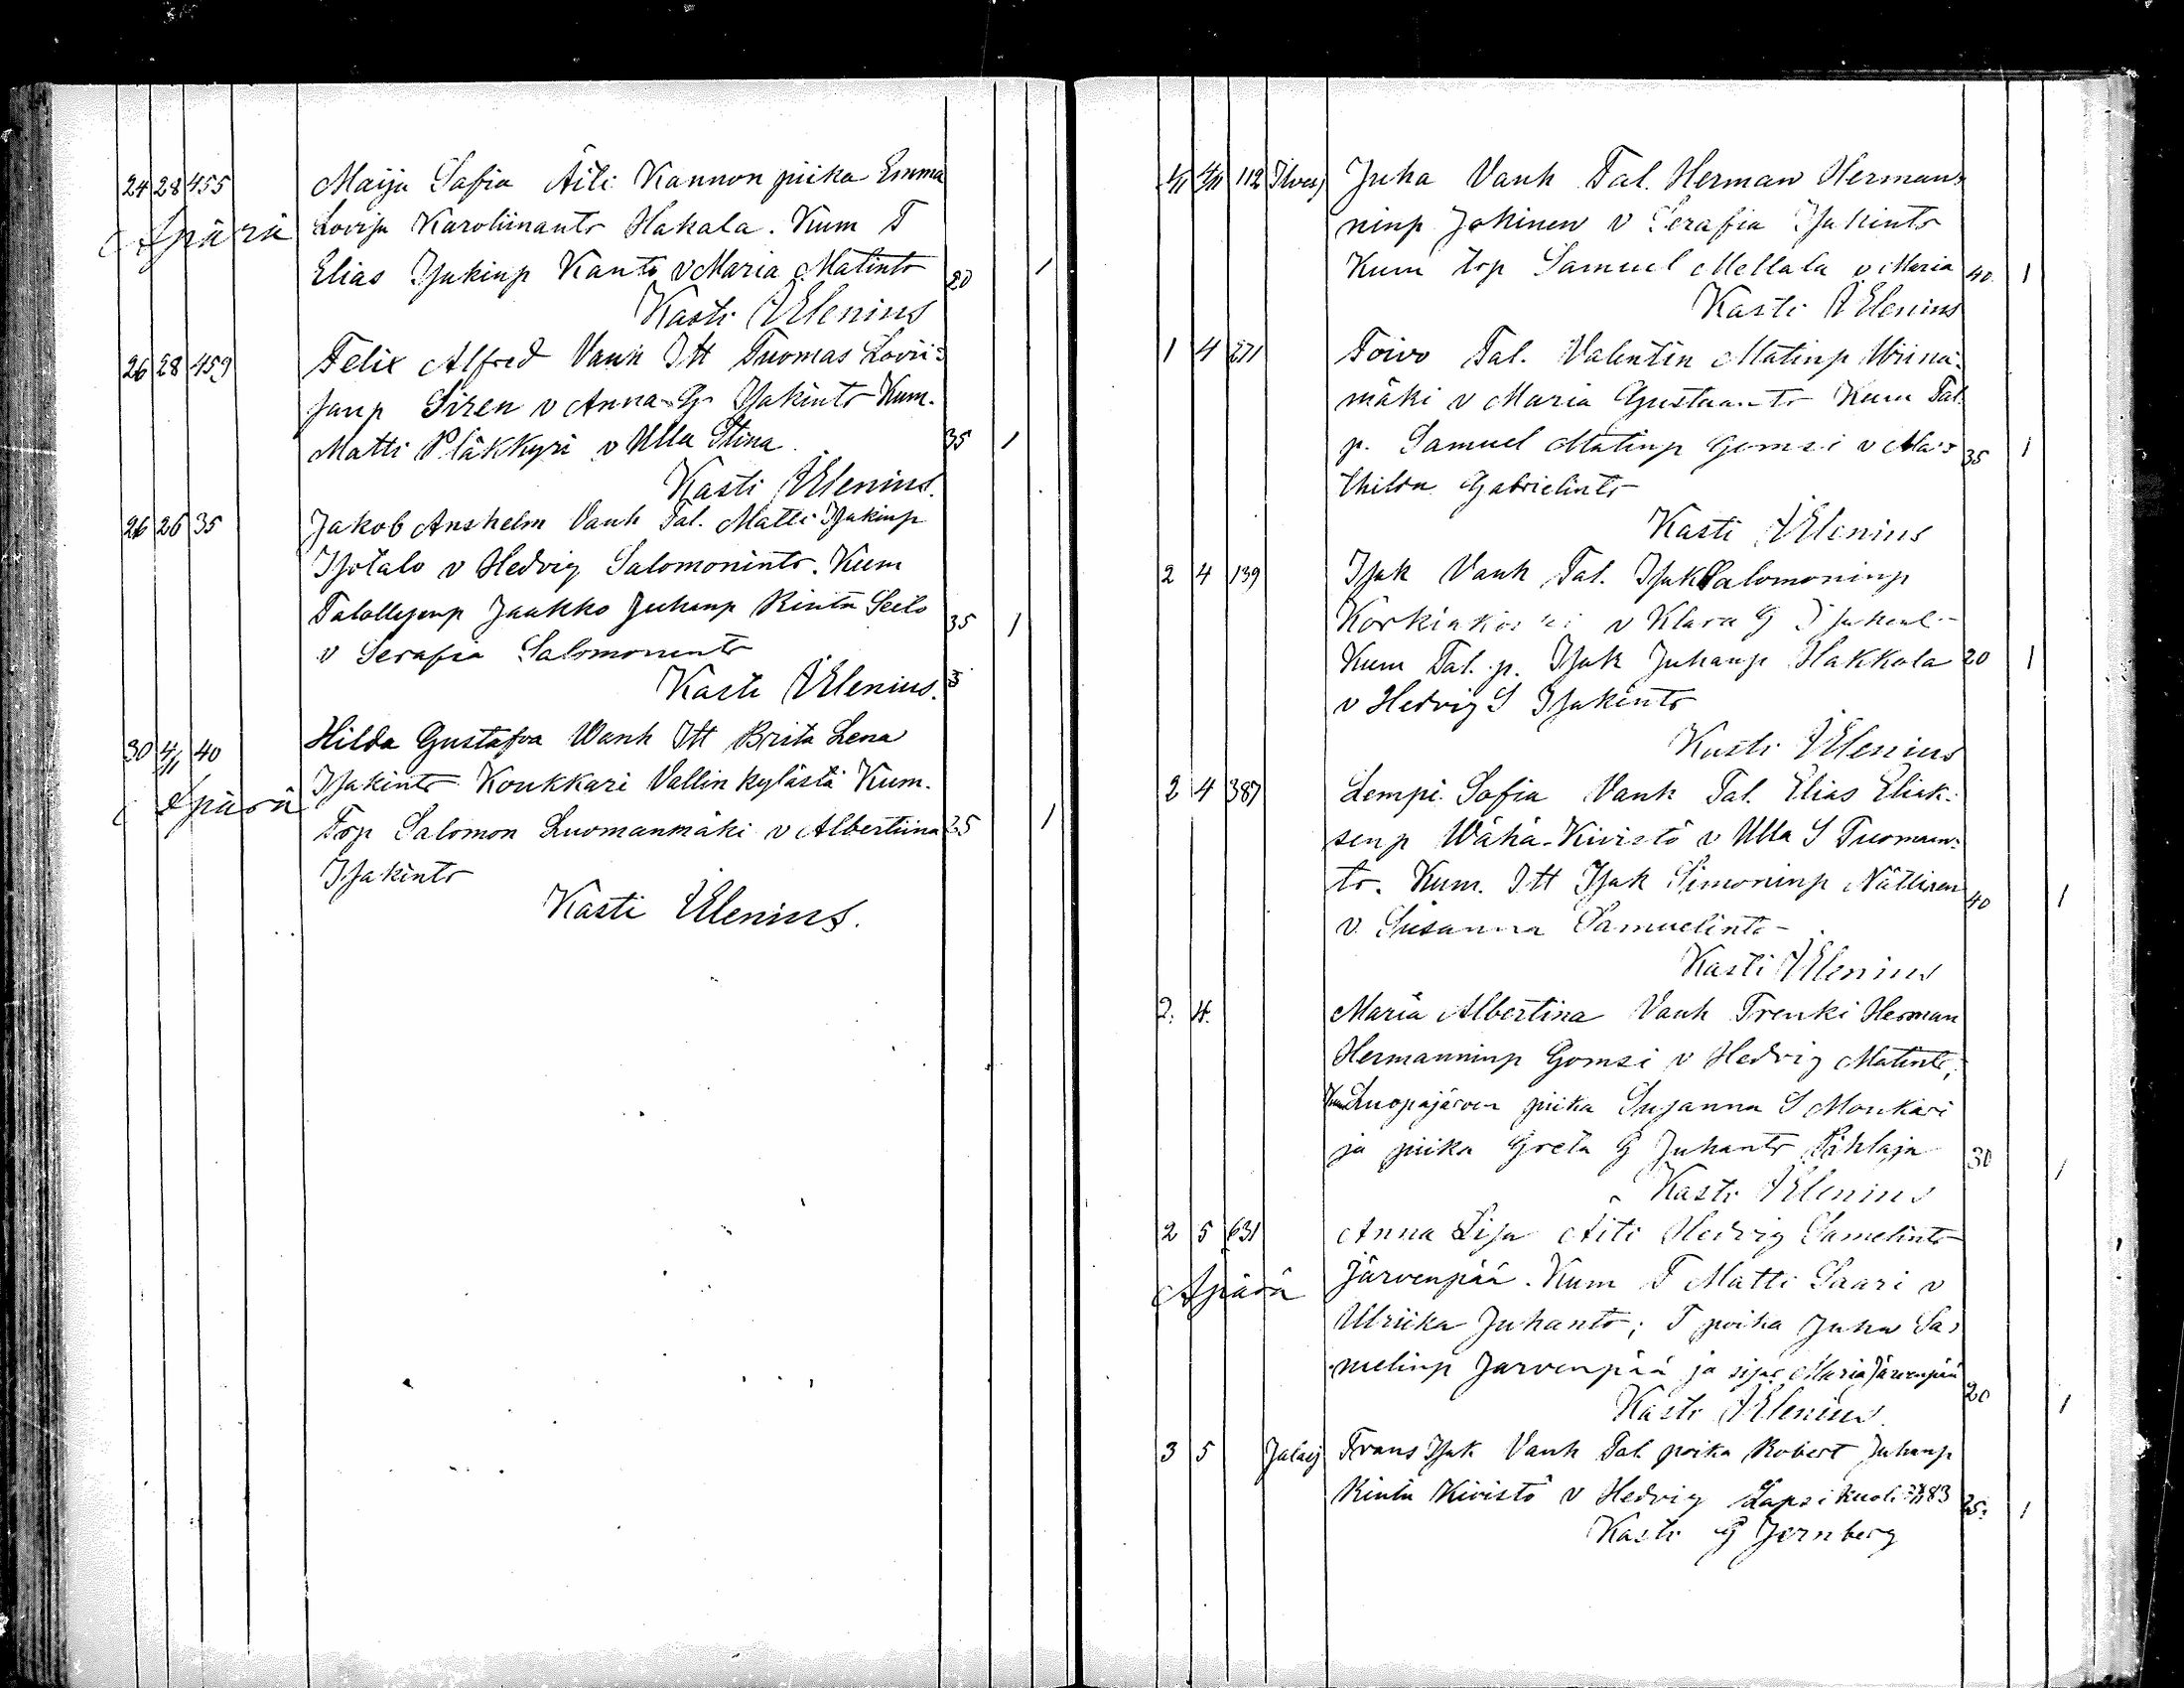 24 28 455 Maija Safia Äiti Kannon piika Emma
Äpärä Lovisa Karoliinantr Hakala. Kum T
Elias Isakinp Kanto v Maria Matintr 20 1
Kasti A Elenius
26 28 459 Felix Alfred Vanh Itt Tuomas Lovii-
sanp Siren v Anna G. Isakintr Kum.
Matti Pläkkyri v Ulla Stina 35 1
Kasti A Elenius.
26 26 35 Jakob Anshelm Vanh Tal. Matti Isakinp
Isotalo v Hedvig Salomonintr. Kum
Talollisenp Jaakko Juhanp Rinta Seilo 35 1
v Serafia Salomonintr
Kasti A Elenius.
30 4/11 40 Hilda Gustafva Wanh Itt Brita Lena
Äpärä Isakintr Koukkari Vallin kylästä Kum.
Trp Salomon Luomanmäki v Albertiina 25 1
Isakintr
Kasti A Elenius.
1/11 4/11 112 Juha Vanh Tal. Herman Herman-
ninp Jokinen v Serafia Isakintr
Kum trp Samuel Mellala v Maria 40 1
Kasti A Elenius
1 4 271 Toivo Tal. Valentin Matinp Viina-
mäki v Maria Gustaantr Kum Tal.
p. Samuel Matinp Gomsi v Ma- 35 1
thilda Gabrielintr
Kasti A Elenius
2 4 139 Isak Vanh Tal. Isak Salomoninp
Korkiakoski v Klara G
Kum Tal. p. Isak Juhanp Hakkola 20 1
v Hedvig S Isakintr
Kasti A Elenius
2 4 387 Lempi Sofia Vanh Tal. Elias Eliak-
senp Wähä-Kivistö v Ulla S Tuoman-
tr. Kum. Itt Isak Simoninp Nättinen 40 1
v. Susanna Samuelintr
Kasti A Elenius
2. 4. Maria Albertina Vanh Trenki Herman
Hermanninp Gomsi v Hedvig Matintr,
Kum Luopajärven piika Susanna S Monkäri
ja piika Greta G Juhantr Pihlaja 30 1
Kasti A Elenius
2 5 631 Anna Lisa Äiti Hedvig Samelintr
Äpärä Järvenpää. Kum T Matti Saari v
Ulriika Juhantr; T poika Juha Sa-
melinp Jarvenpää ja sisar Maria Järvenpää
Kasti A Elenius. 20 1
3 5 Jalasj Frans Isak Vanh Tal poika Robert Juhanp
Rinta Kivistö v Hedvig Lapsi kuoli 83 25. 1
Kasti G Jernberg